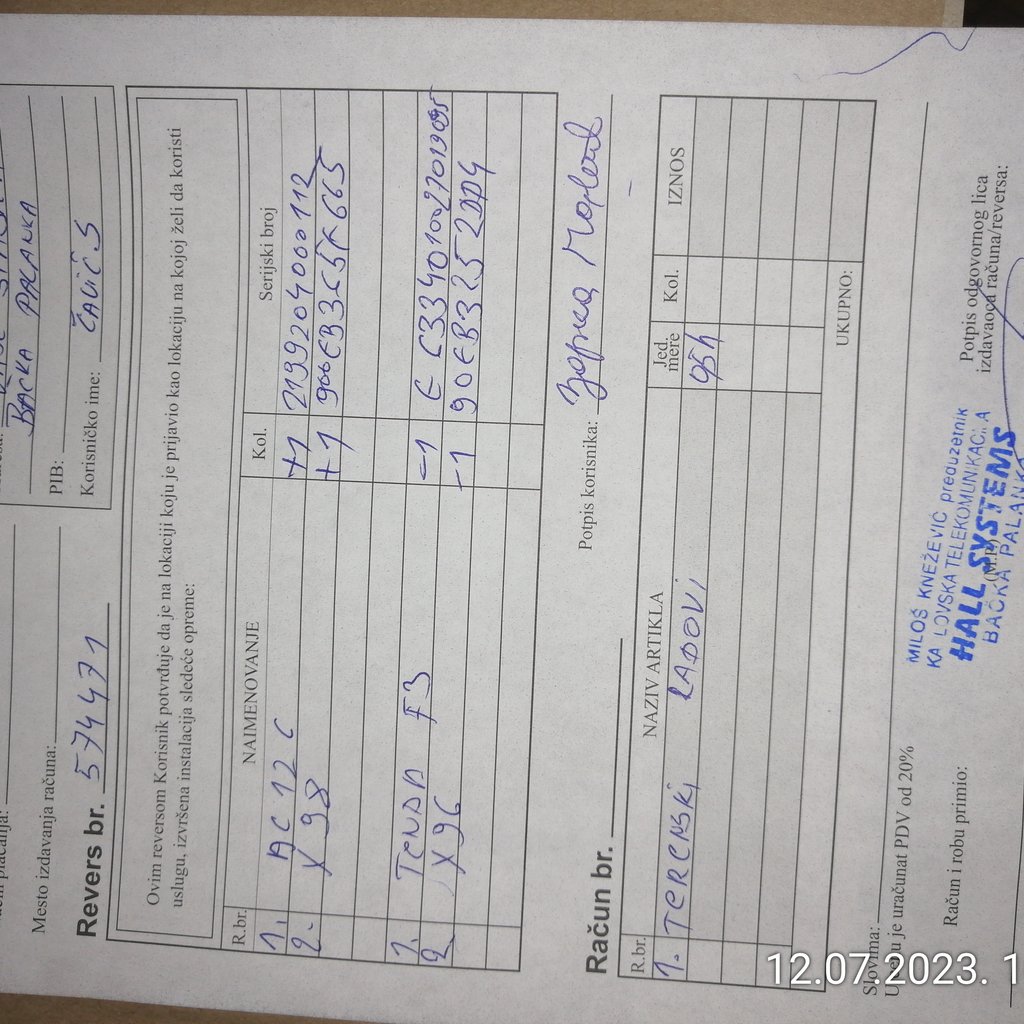 BAČKA PALANKA
PIB:
Korisničko ime: ČALIČ S
Mesto izdavanja računa:
Revers br. 574471
Ovim reversom Korisnik potvrđuje da je na lokaciji koju je prijavio kao lokaciju na kojoj želi da koristi
uslugu, izvršena instalacija sledeće opreme:
R.br. NAIMENOVANJE Kol. Serijski broj
1. AC 12 C +1 2199204000112
2. X 98 +1
1. TENDA F3 -1
2 X 96 -1 90EB3252DD4
Potpis korisnika: Зорка
Račun br.
R.br. NAZIV ARTIKLA Jed. mere Kol. IZNOS
1. TERENSKI RADOVI
UKUPNO:
Slovima:
U cenu je uračunat PDV od 20%
Račun i robu primio:
(M.P.)
Potpis odgovornog lica
izdavaoca računa/reversa:
MILOŠ KNEŽEVIĆ preduzetnik
KABLOVSKA TELEKOMUNIKACIJA
HALL SYSTEMS
BAČKA PALANKA
12.07.2023. 1